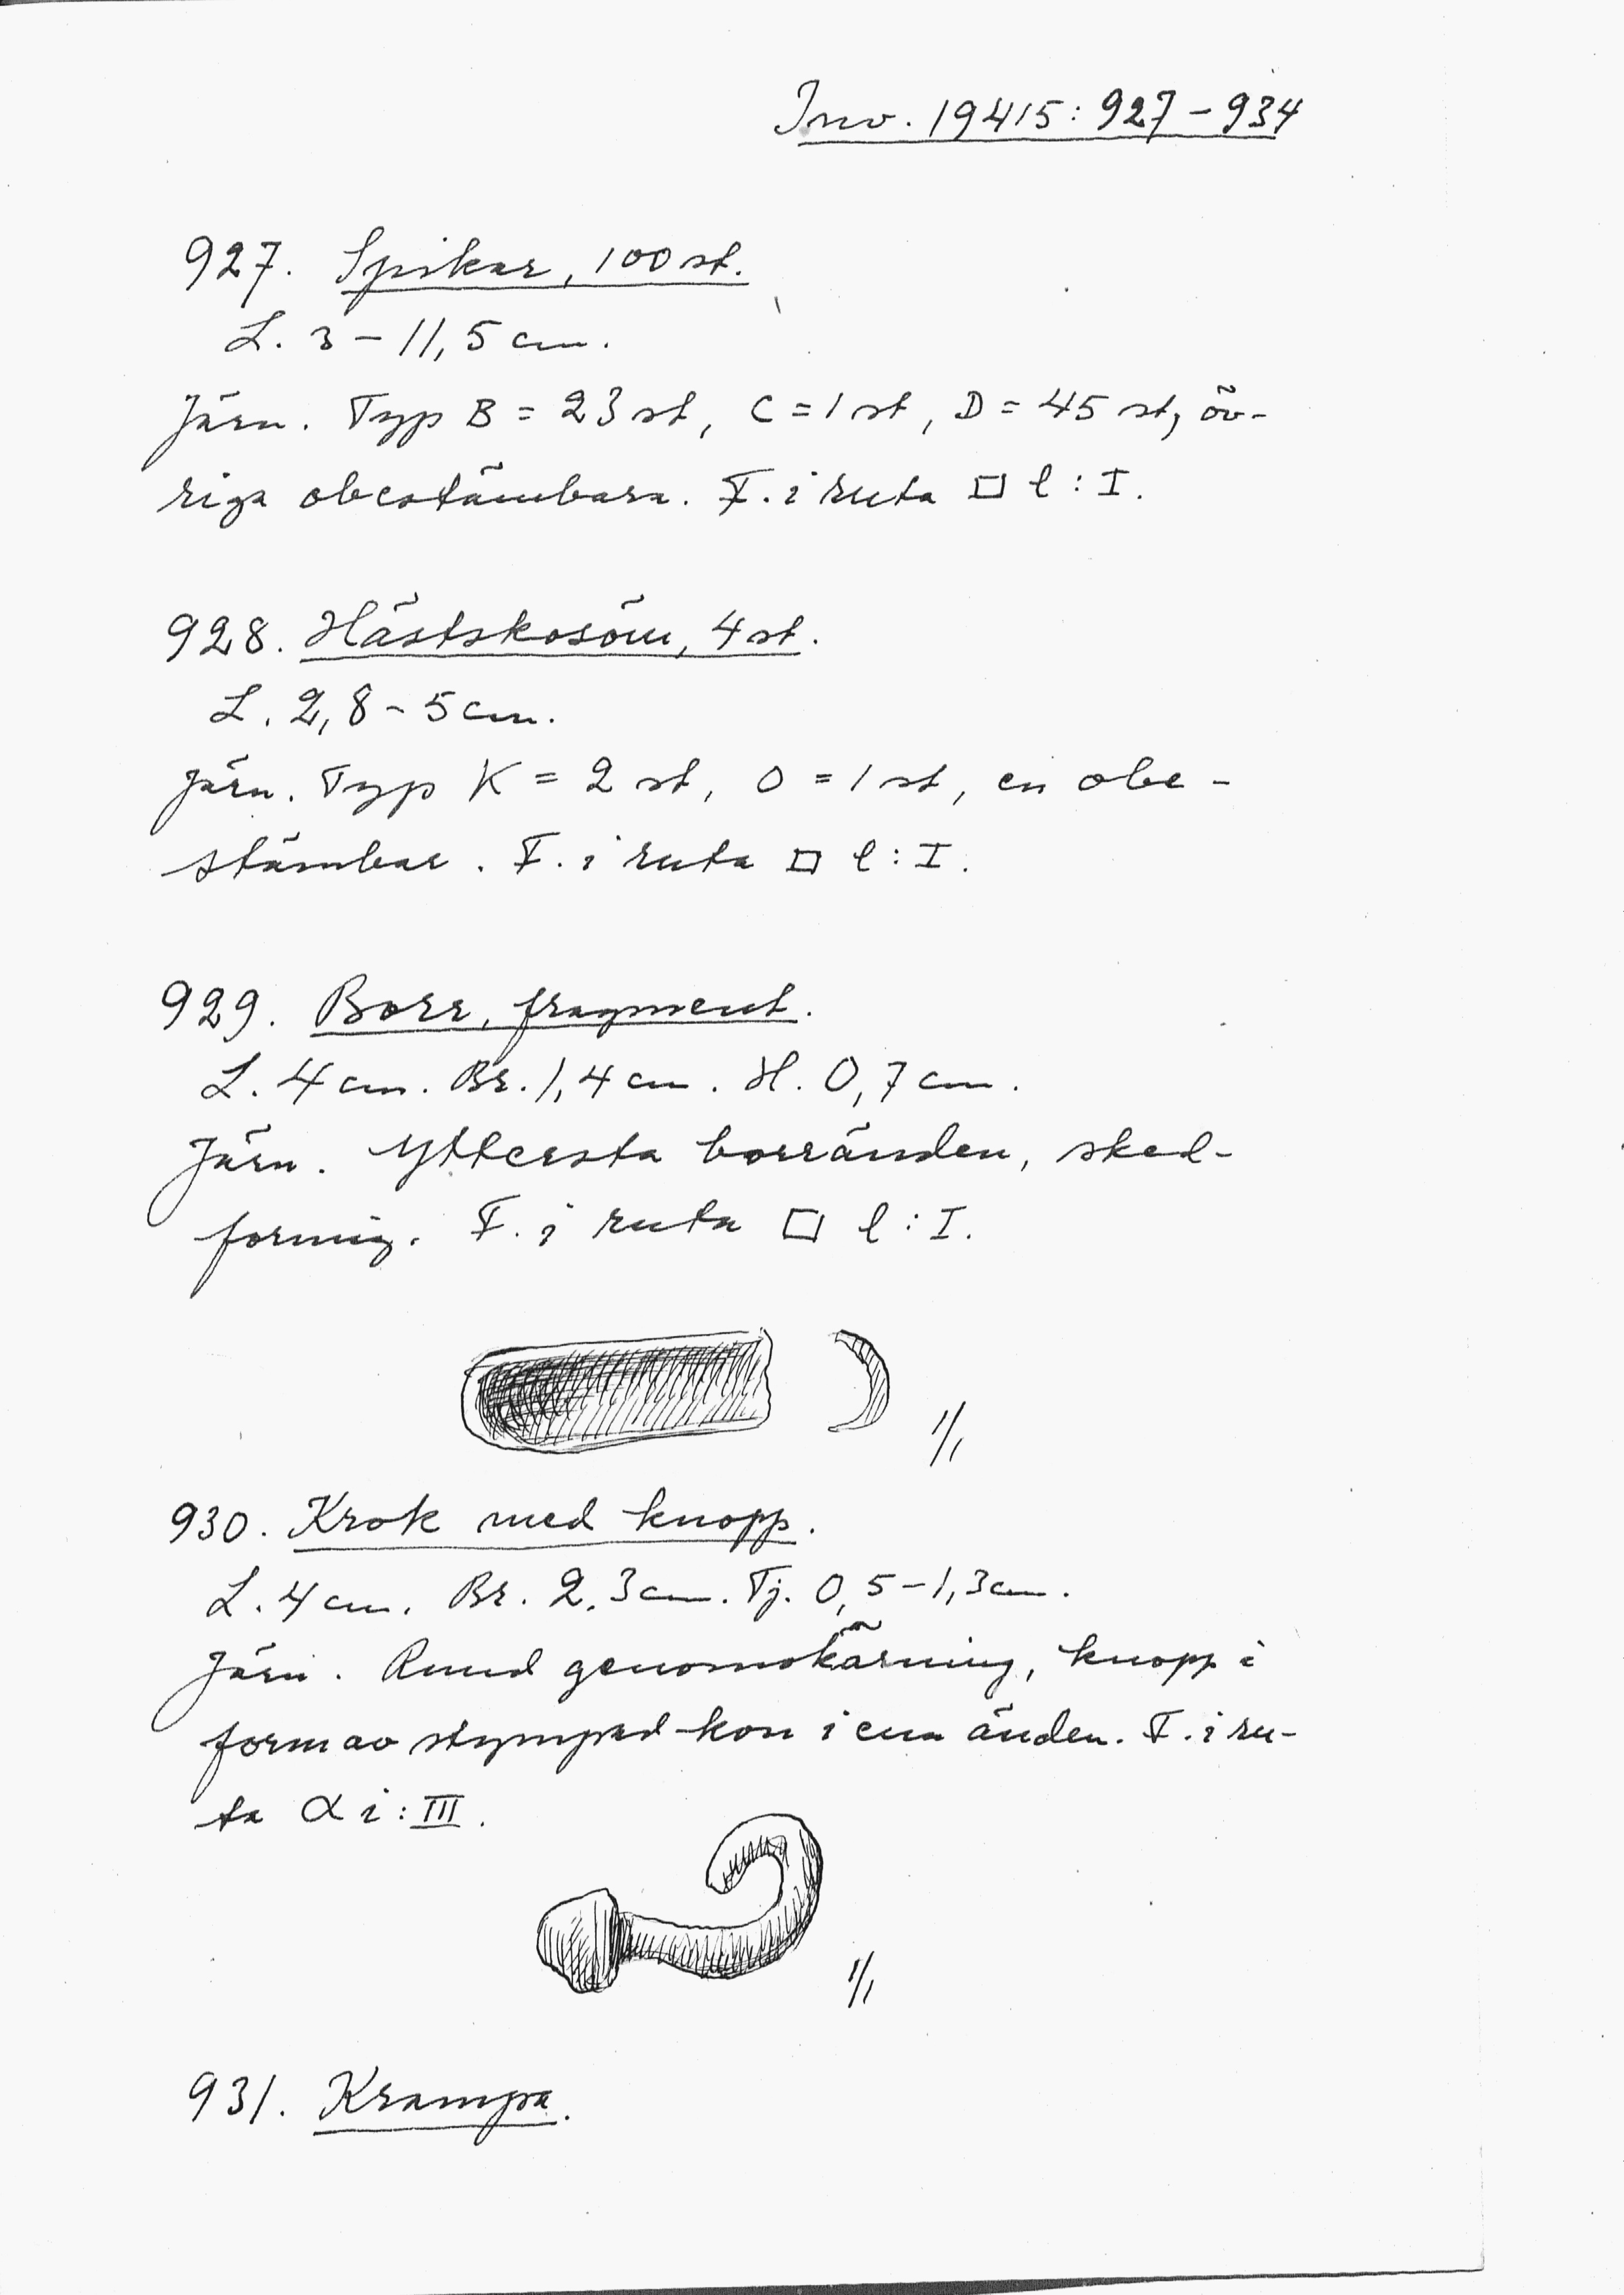 Inv. 19415: 927 – 934
927. Spikar, 100 st.
L. 3 – 11,5 cm.
Järn. Typ B = 23 st, C = 1 st, D = 45 st, öv-
riga obestämbara. F. i ruta □ l : I.
928. Hästskosöm, 4 st.
L. 2,8 – 5 cm.
Järn. Typ K = 2 st, O = 1 st, en obe-
stämbar. F. i ruta □ l : I.
929. Borr, fragment.
L. 4 cm. Br. 1,4 cm. H. 0,7 cm.
Järn. Yttersta borränden, sked-
formig. F. i ruta □ l : I.
1/1
930. Krok med knopp.
L. 4 cm. Br. 2,3 cm. Tj. 0,5 – 1,3 cm.
Järn. Rund genomskärning, knopp i
form av stympad kon i ena änden. F. i ru-
ta α i : III.
1/1
931. Krampa.